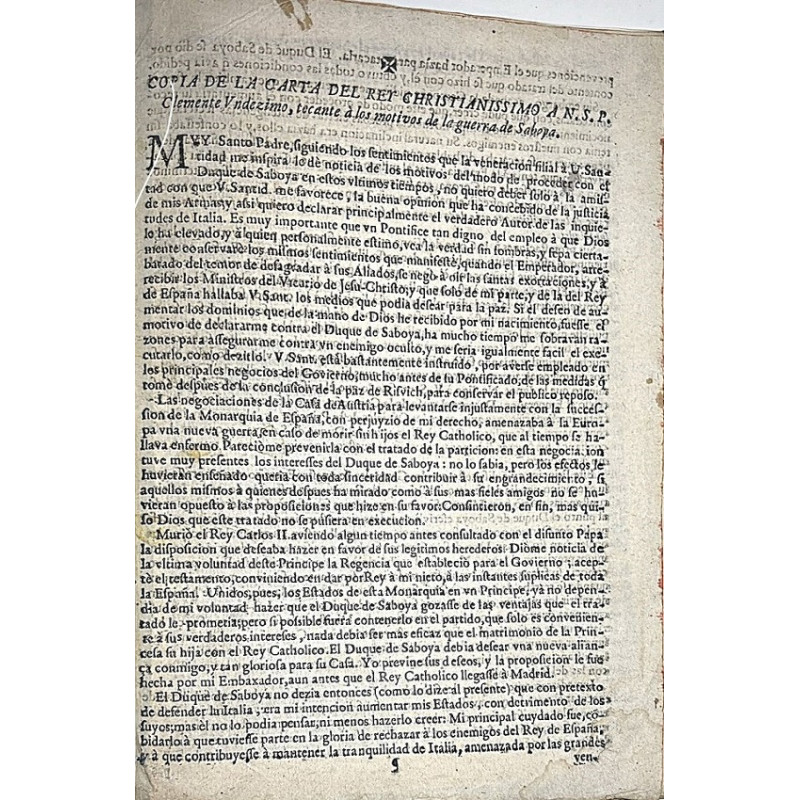 COPIA DE LA CARTA DEL REY CHRISTIANISSIMO A N. S. P.
Clemente Vndezimo, tocante à los motivos de la guerra de Saboya.
MVY Santo Padre, siguiendo los sentimientos que la veneracion filial à V. San-
tidad me inspira lo dè noticia de los motivos del modo de proceder con el
Duque de Saboya en estos vltimos tiempos, no quiero deber solo à la amis-
tad con que V. Santid. me favorece, la buena opinion que ha concebido de la justicia
de mis Armas, y assi quiero declarar principalmente el verdadero Autor de las inquie-
tudes de Italia. Es muy importante que vn Pontifice tan digno del empleo à que Dios
lo ha elevado, y à quien personalmente estimo, vea la verdad sin sombras, y sepa cierta-
mente conservarè los mismos sentimientos que manifestè, quando el Emperador, arre-
batado del temor de desagradar à sus Aliados, se negò à oir las santas exortaciones, y à
recibir los Ministros del Vicario de Jesu-Christo; y que solo de mi parte, y de la del Rey
de España hallaba V. Sant. los medios que podia desear para la paz. Si el deseo de au-
mentar los dominios que de la mano de Dios he recibido por mi nacimiento, fuesse el
motivo de declararme contra el Duque de Saboya, ha mucho tiempo me sobravan ra-
zones para assegurarme contra vn enemigo oculto, y me seria igualmente facil el exe-
cutarlo, como dezirlo. V. Sant. està bastantemente instruido, por averse empleado en
los principales negocios del Govierno, mucho antes de su Pontificado, de las medidas q̃
tomè despues de la conclusion de la paz de Risvich, para conservar el publico reposo.
Las negociaciones de la Casa de Austria para levantarse injustamente con la succes-
sion de la Monarquia de España, con perjuyzio de mi derecho, amenazaba à la Euro-
pa vna nueva guerra, en caso de morir sin hijos el Rey Catholico, que al tiempo se ha-
llava enfermo. Pareciòme prevenirla con el tratado de la particion: en esta negocia. ion
tuve muy presentes los interesses del Duque de Saboya : no lo sabia, pero los efectos le
huvieran enseñado queria con toda sinceridad contribuir à su engrandecimiento, si
aquellos mismos à quienes despues ha mirado como à sus mas fieles amigos no se hu-
vieran opuesto à las proposiciones que hize en su favor. Consintieron, en fin, mas qui-
so Dios que este tratado no se pusiera en execucion.
Muriò el Rey Carlos II. aviendo algun tiempo antes consultado con el difunto Papa
la disposicion que deseaba hazer en favor de sus legitimos herederos. Diòme noticia de
la vltima voluntad deste Principe la Regencia que estableciò para el Govierno ; acep-
tò el testamento, conviniendo en dar por Rey à mi nieto, à las instantes suplicas de toda
la España. Unidos, pues, los Estados de esta Monarquia en vn Principe, yà no depen-
dia de mi voluntad hazer que el Duque de Saboya gozasse de las ventajas que el tra-
tado le prometia; pero si possible fuera contenerlo en el partido, que solo es convenien-
te à sus verdaderos interesses, nada debia ser mas eficaz que el matrimonio de la Prin-
cesa su hija con el Rey Catholico. El Duque de Saboya debia desear vna nueva alian-
ça conmigo, y tan gloriosa para su Casa. Yo previne sus deseos, y la proposicion le fuè
hecha por mi Embaxador, aun antes que el Rey Catholico llegasse à Madrid.
El Duque de Saboya no dezia entonces (como lo dize al presente) que con pretexto
de defender la Italia, era mi intencion aumentar mis Estados, con detrimento de los
suyos; mas èl no lo podia pensar, ni menos hazerlo creer: Mi principal cuydado fue, co-
bidarlo à que tuviesse parte en la gloria de rechazar à los enemigos del Rey de España,
y à que contribuyesse à mantener la tranquilidad de Italia, amenazada por las grandes
ven-